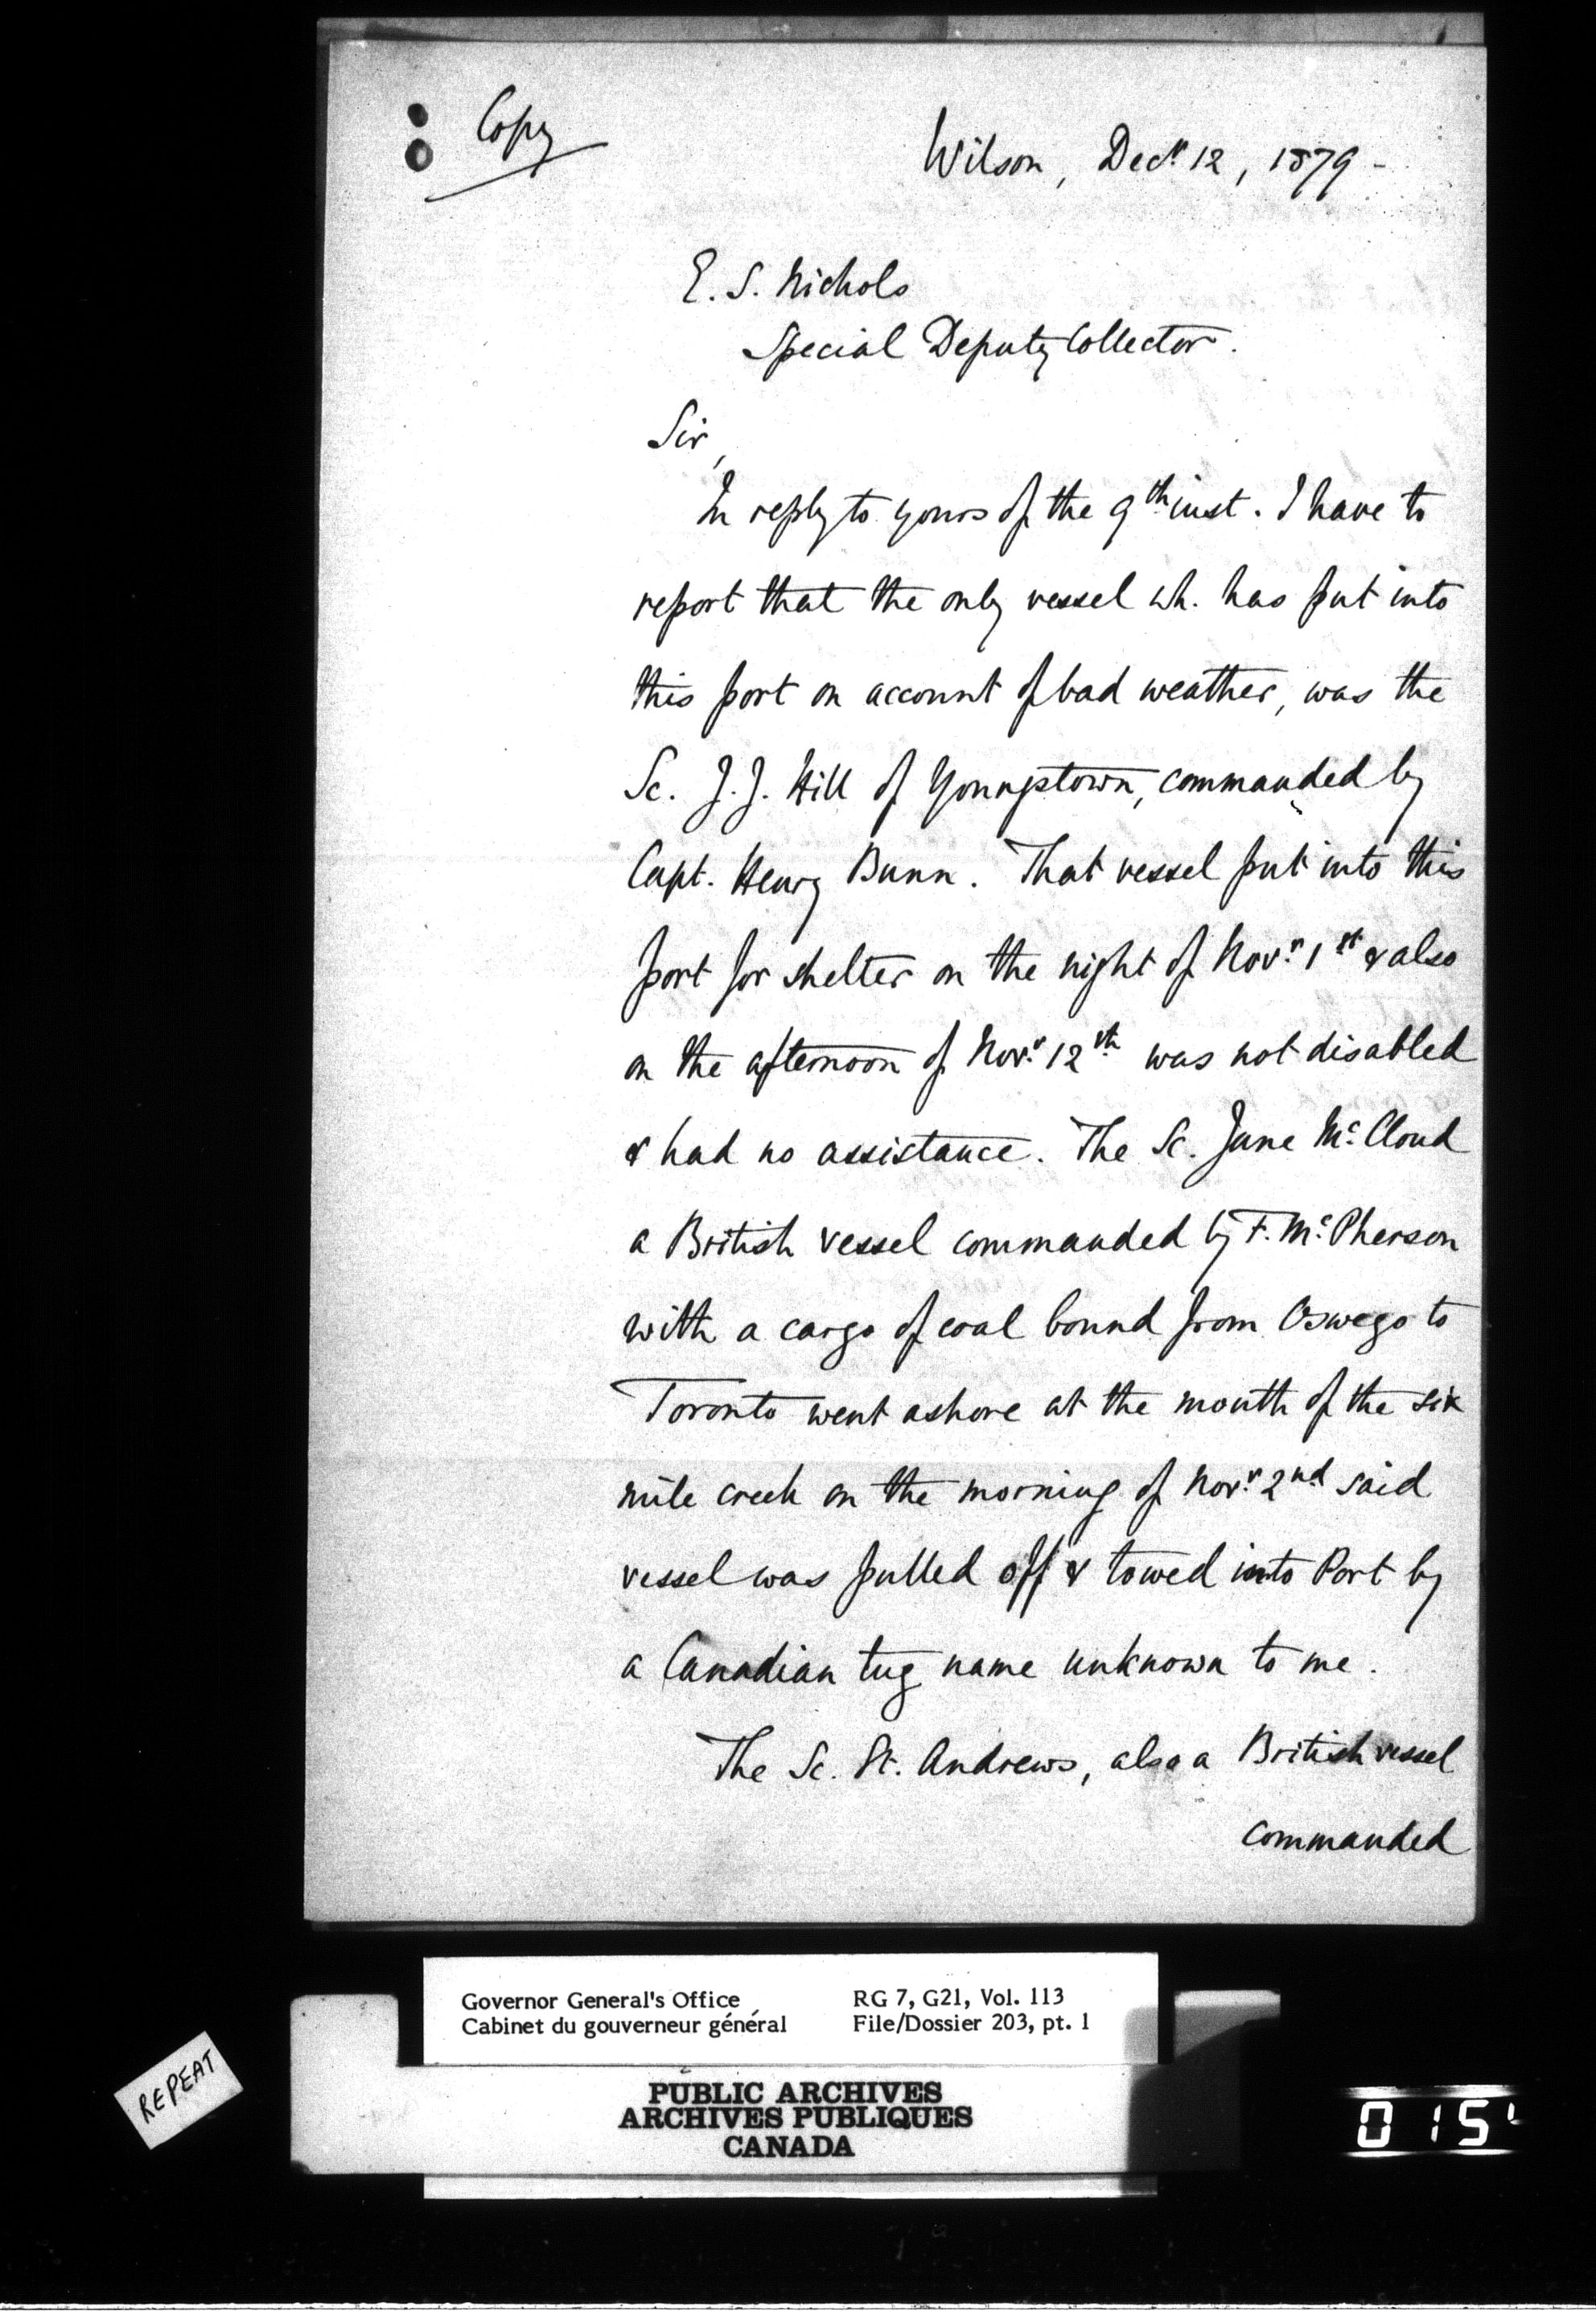 Copy
Wilson, Decr. 12, 1879 -
E. S. Nichols
Special Deputy Collector.
Sir,
In reply to yours of the 9th inst. I have to
report that the only vessel wh. has put into
this port on account of bad weather, was the
Sc. J. J. Hill of Youngstown, commanded by
Capt. Henry Bunn. That vessel put into this
port for shelter on the night of Novr. 1st & also
on the afternoon of Novr. 12th was not disabled
& had no assistance. The Sc. Jane Mc.Cloud
a British vessel commanded by F. Mc.Pherson
with a cargo of coal bound from Oswego to
Toronto went ashore at the mouth of the six
mile creek on the morning of Novr. 2nd. said
vessel was pulled off & towed into Port by
a Canadian tug name unknown to me.
The Sc. St. Andrews, also a British vessel
commanded
Governor General's Office RG 7, G21, Vol. 113
Cabinet du gouverneur général File/Dossier 203, pt. 1
REPEAT
PUBLIC ARCHIVES
ARCHIVES PUBLIQUES
CANADA
015